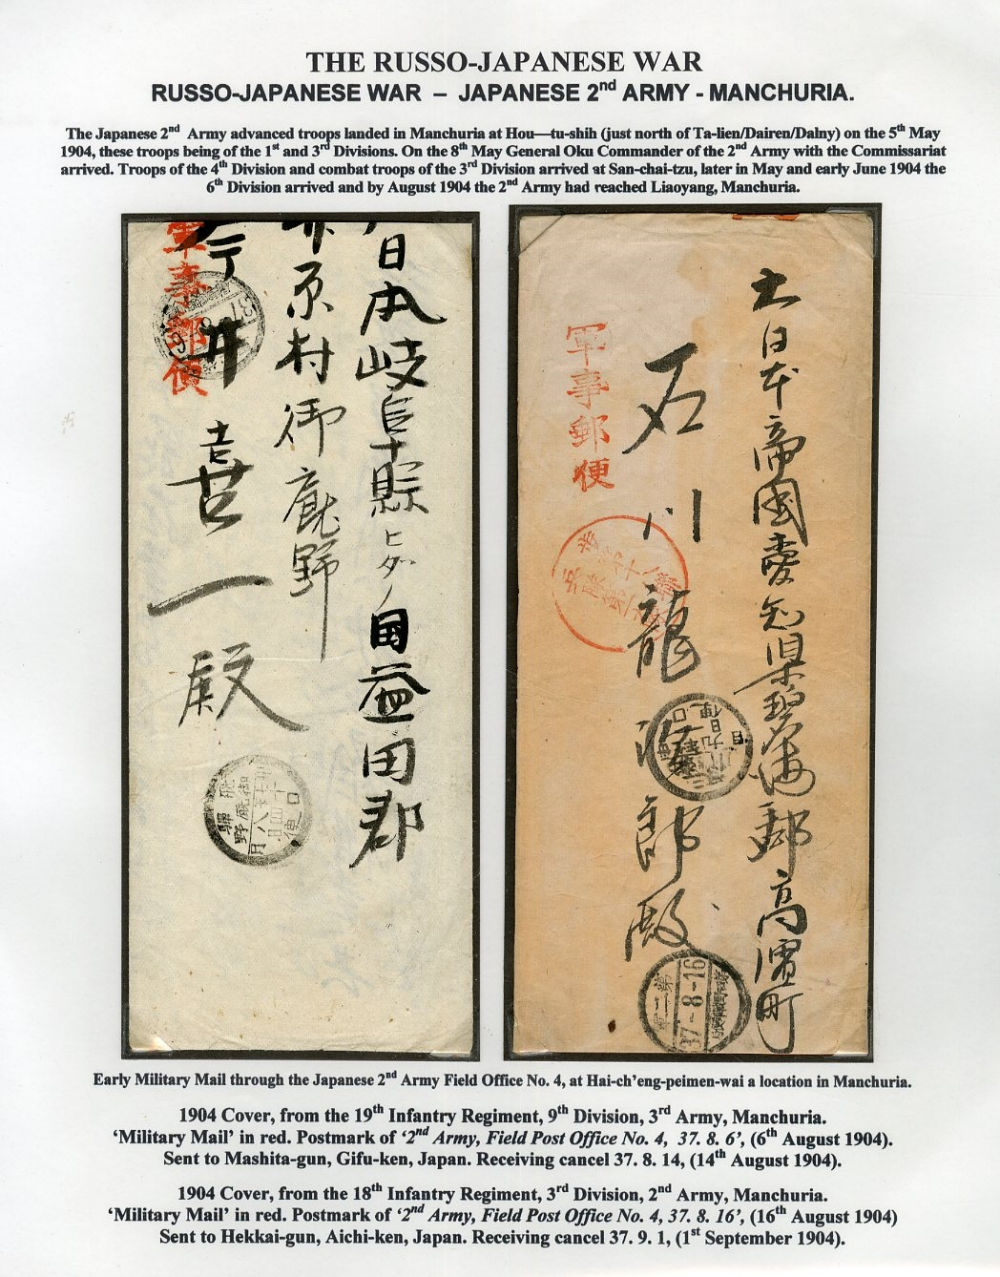 THE RUSSO-JAPANESE WAR
RUSSO-JAPANESE WAR – JAPANESE 2nd ARMY - MANCHURIA.
The Japanese 2nd Army advanced troops landed in Manchuria at Hou—tu-shih (just north of Ta-lien/Dairen/Dalny) on the 5th May
1904, these troops being of the 1st and 3rd Divisions. On the 8th May General Oku Commander of the 2nd Army with the Commissariat
arrived. Troops of the 4th Division and combat troops of the 3rd Division arrived at San-chai-tzu, later in May and early June 1904 the
6th Division arrived and by August 1904 the 2nd Army had reached Liaoyang, Manchuria.
日本岐阜縣ヒダノ国益田郡
原村御厩野
今井喜一殿
軍事郵便
大日本帝國愛知県碧海郡高濱町
石川龍治郎殿
軍事郵便
37-8-16
Early Military Mail through the Japanese 2nd Army Field Office No. 4, at Hai-ch'eng-peimen-wai a location in Manchuria.
1904 Cover, from the 19th Infantry Regiment, 9th Division, 3rd Army, Manchuria.
‘Military Mail’ in red. Postmark of ‘2nd Army, Field Post Office No. 4, 37. 8. 6’, (6th August 1904).
Sent to Mashita-gun, Gifu-ken, Japan. Receiving cancel 37. 8. 14, (14th August 1904).
1904 Cover, from the 18th Infantry Regiment, 3rd Division, 2nd Army, Manchuria.
‘Military Mail’ in red. Postmark of ‘2nd Army, Field Post Office No. 4, 37. 8. 16’, (16th August 1904)
Sent to Hekkai-gun, Aichi-ken, Japan. Receiving cancel 37. 9. 1, (1st September 1904).